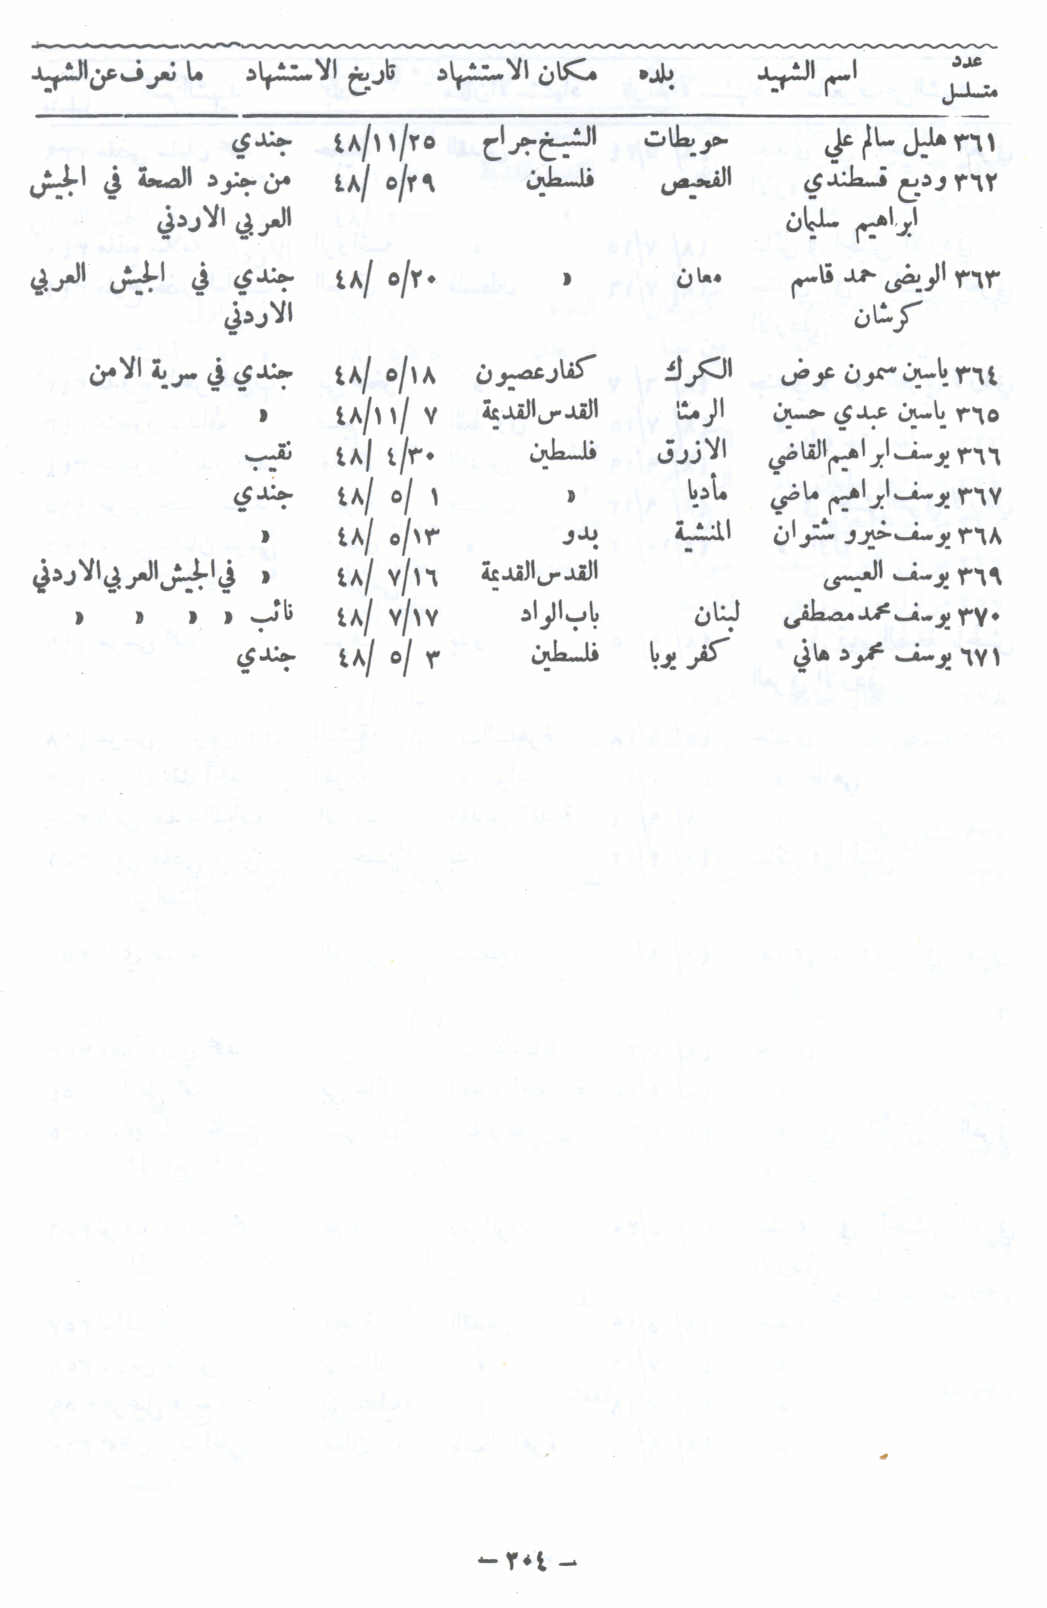 عدد متسلسل اسم الشهيد بلده مكان الاستشهاد تاريخ الاستشهاد ما نعرف عن الشهيد
٣٦١ هليل سالم علي حويطات الشيخ جراح ٤٨/١١/٢٥ جندي
٣٦٢ وديع قسطندي الفحيص فلسطين ٤٨/ ٥/٢٩ من جنود الصحة في الجيش
ابراهيم سليمان العربي الاردني
٣٦٣ الويضي حمد قاسم معان » ٤٨/ ٥/٢٠ جندي في الجيش العربي
كرشان الاردني
٣٦٤ ياسين سمون عوض الكرك كفار عصيون ٤٨/ ٥/١٨ جندي في سرية الامن
٣٦٥ ياسين عبدي حسين الرمثا القدس القديمة ٤٨/١١/ ٧ »
٣٦٦ يوسف ابراهيم القاضي الازرق فلسطين ٤٨/ ٤/٣٠ نقيب
٣٦٧ يوسف ابراهيم ماضي مأدبا » ٤٨/ ٥/ ١ جندي
٣٦٨ يوسف خيرو شتوان المنشية بدو ٤٨/ ٥/١٣ »
٣٦٩ يوسف العيسى القدس القديمة ٤٨/ ٧/١٦ » في الجيش العربي الاردني
٣٧٠ يوسف محمد مصطفى لبنان باب الواد ٤٨/ ٧/١٧ نائب » » » »
٦٧١ يوسف محمود هاني كفر يوبا فلسطين ٤٨/ ٥/ ٣ جندي
– ٣٠٤ –